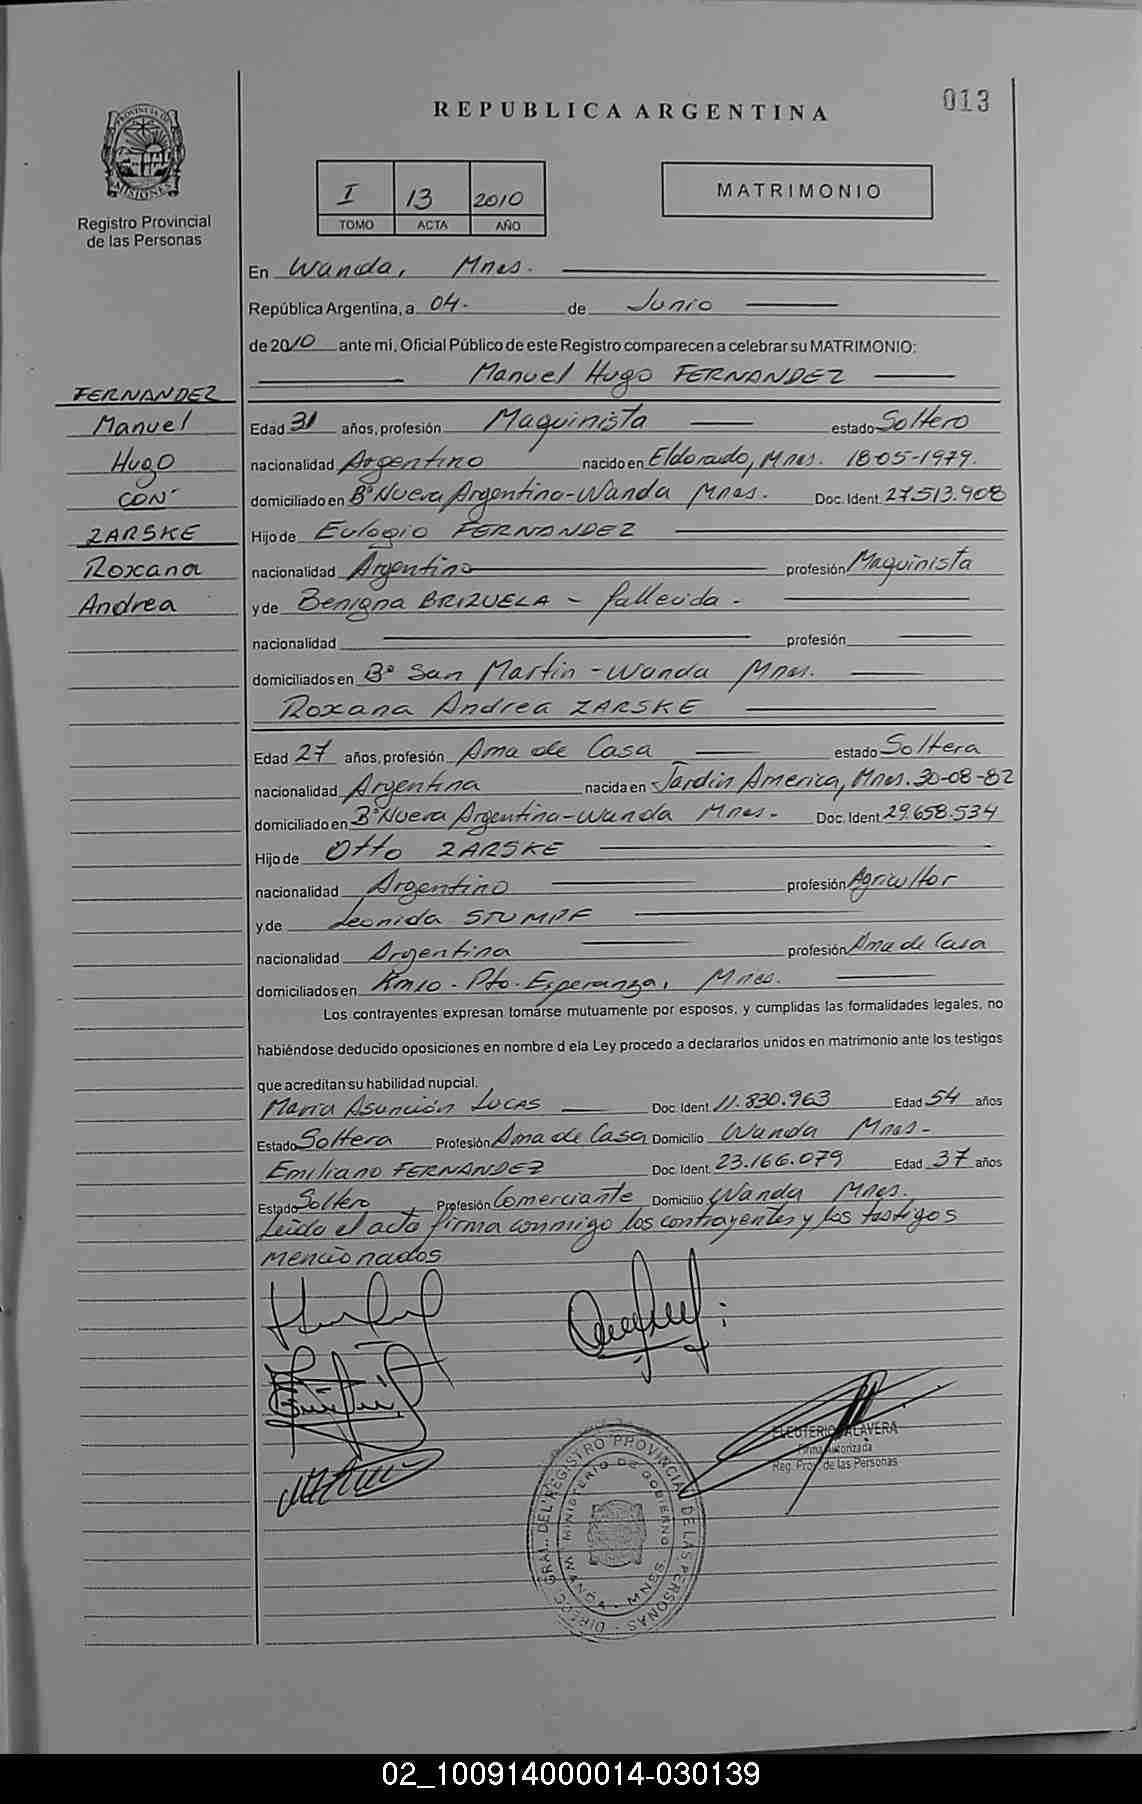 013
REPUBLICA ARGENTINA
PROVINCIA DE
MISIONES
Registro Provincial
de las Personas
I 13 2010
TOMO ACTA AÑO
MATRIMONIO
En Wanda, Mnes.
República Argentina, a 04- de Junio
de 2010 ante mi, Oficial Público de este Registro comparecen a celebrar su MATRIMONIO:
Manuel Hugo FERNANDEZ
FERNANDEZ
Manuel
Hugo
CON
ZARSKE
Roxana
Andrea
Edad 31 años, profesión Maquinista estado Soltero
nacionalidad Argentino nacido en Eldorado, Mnes. 18-05-1979.
domiciliado en Bº Nueva Argentina-Wanda Mnes. Doc. Ident. 27.513.908
Hijo de Eulogio FERNANDEZ
nacionalidad Argentino profesión Maquinista
y de Benigna BRIZUELA - fallecida -
nacionalidad profesión
domiciliados en Bº San Martin - Wanda Mnes.
Roxana Andrea ZARSKE
Edad 27 años, profesión Ama de Casa estado Soltera
nacionalidad Argentina nacida en Jardin America, Mnes. 30-08-82
domiciliado en Bº Nueva Argentina-Wanda Mnes. Doc. Ident. 29.658.534
Hijo de Otto ZARSKE
nacionalidad Argentino profesión Agricultor
y de Leonida STUMPF
nacionalidad Argentina profesión Ama de Casa
domiciliados en Km10 - Pto. Esperanza, Mnes.
Los contrayentes expresan tomarse mutuamente por esposos, y cumplidas las formalidades legales, no
habiéndose deducido oposiciones en nombre d ela Ley procedo a declararlos unidos en matrimonio ante los testigos
que acreditan su habilidad nupcial.
Maria Asunción LUCAS Doc. Ident. 11.830.963 Edad 54 años
Estado Soltera Profesión Ama de Casa Domicilio Wanda Mnes-
Emiliano FERNANDEZ Doc. Ident. 23.166.079 Edad 37 años
Estado Soltero, Profesión Comerciante Domicilio Wanda Mnes.
Leida el acta firma conmigo los contrayentes y los testigos
mencionados
ELEUTERIO TALAVERA
Firma Autorizada
Reg. Prov. de las Personas
DIREC. GRAL. DEL REGISTRO PROVINCIAL DE LAS PERSONAS
MINISTERIO DE GOBIERNO
WANDA - MNES.
02_100914000014-030139